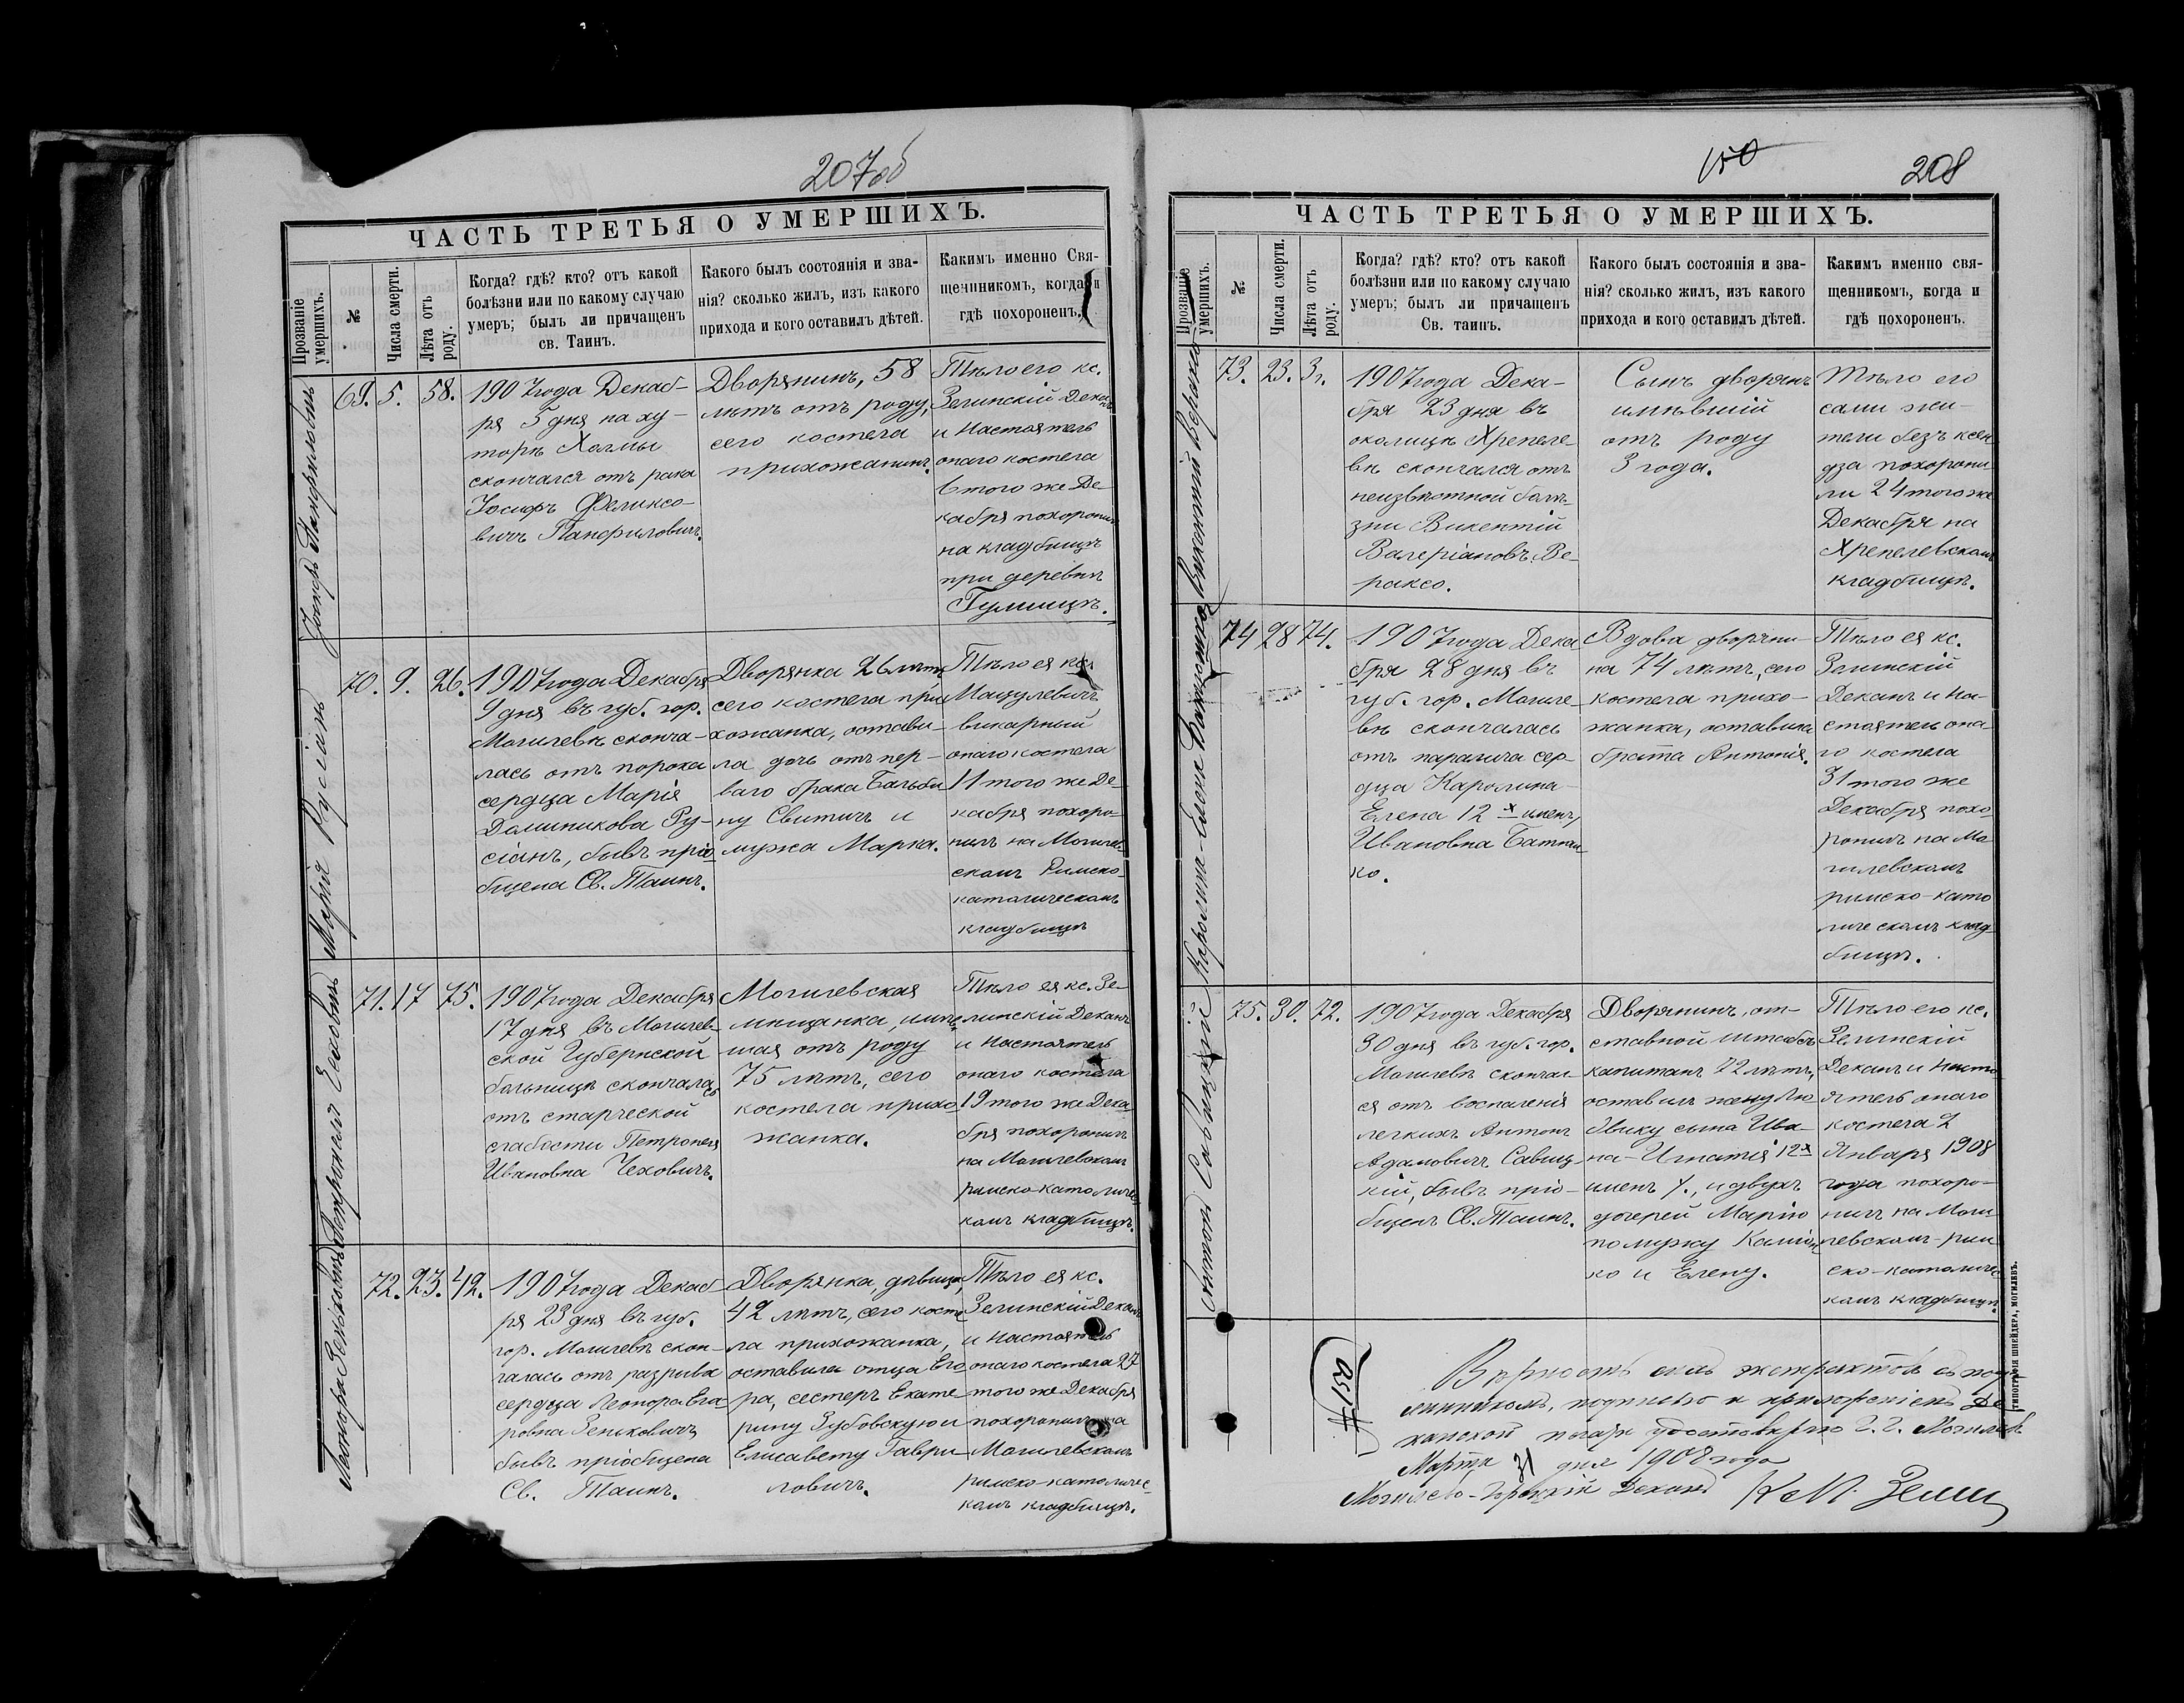 207об
ЧАСТЬ ТРЕТЬЯ О УМЕРШИХЪ.
Прозваніе умершихъ.
№
Числа смерти.
Лѣта отъ роду.
Когда? гдѣ? кто? отъ какой
болѣзни или по какому случаю
умеръ; былъ ли причащенъ
св. Таинъ.
Какого былъ состоянія и зва-
нія? сколько жилъ, изъ какого
прихода и кого оставилъ дѣтей.
Какимъ именно Свя-
щенникомъ, когда и
гдѣ похороненъ.
Іосифъ Панфиловичъ
69. 5. 58.
1907 года Декаб-
ря 5 дня на ху-
торѣ Холмы
скончался отъ рака
Іосифъ Феликсо-
вичъ Панфиловичъ.
Дворянинъ, 58
лѣтъ отъ роду,
сего костела
прихожанинъ.
Тѣло его кс.
Зелинскій Деканъ
и Настоятель
онаго костела
6 того же Де-
кабря похоронилъ
на кладбищѣ
при деревнѣ
Марія Русіанъ
70. 9. 26.
1907 года Декабря
9 дня въ губ. гор.
Могилевѣ сконча-
лась отъ порока
сердца Марія
Доминикова Ру-
сіанъ, бывъ прiо-
бщена Св. Таинъ.
Дворянка 26 лѣтъ
сего костела при
хожанка, остави-
ла дочь отъ пер-
ваго брака Бальби
ну Свитичъ и
мужа Марка.
Тѣло ея кс.
Мацулевичъ
викарный
онаго костела
11 того же Де-
кабря похоро-
нилъ на Могилев-
скомъ Римско-
католическомъ
кладбищѣ
Петронеля Чеховичъ
71. 17 75.
1907 года Декабря
17 дня въ Могилев-
ской Губернской
больницѣ скончалась
отъ старческой
слабости Петронеля
Ивановна Чеховичъ.
Могилевская
мѣщанка, имѣв
шая отъ роду
75 лѣтъ, сего
костела прихо
жанка.
Тѣло ея кс. Зе-
линскій Деканъ
и Настоятель
онаго костела
19 того же Дека
бря похоронилъ
на Могилевскомъ
римско-католичес
комъ кладбищѣ.
Леонора Зеньковичъ
72. 23. 42.
1907 года Декаб
ря 23 дня въ губ.
гор. Могилевѣ скон-
чалась отъ разрыва
сердца Леонора Его
ровна Зеньковичъ
бывъ прiобщена
Св. Таинъ.
Дворянка, дѣвица,
42 лѣтъ, сего косте
ла прихожанка,
оставила отца Его
ра, сестеръ Екате
рину Зубовскую и
Елисавету Гаври-
ловичъ.
Тѣло ея кс.
Зелинскій Деканъ
и Настоятель
онаго костела 27
того же Декабря
похоронилъ на
Могилевскомъ
римско-католичес-
комъ кладбищѣ.
150
208
ЧАСТЬ ТРЕТЬЯ О УМЕРШИХЪ.
Прозваніе умершихъ.
№
Числа смерти.
Лѣта отъ роду.
Когда? гдѣ? кто? отъ какой
болѣзни или по какому случаю
умеръ; былъ ли причащенъ
Св. таинъ.
Какого былъ состоянія и зва-
нія? сколько жилъ, изъ какого
прихода и кого оставилъ дѣтей.
Какимъ именно свя-
щенникомъ, когда и
гдѣ похороненъ.
Викентій Вераксо
73. 23. 3 г.
1907 года Дека-
бря 23 дня въ
околицѣ Хрепеле-
вѣ скончался отъ
неизвѣстной болѣ-
зни Викентій
Валеріановъ Ве-
раксо.
Сынъ дворянъ
имѣвшій
отъ роду
3 года.
Тѣло его
сами жи-
тели безъ ксен
дза похорони
ли 24 того же
Декабря на
Хрепелевскомъ
кладбищѣ.
Каролина-Елена
74 28 74.
1907 года Дека
бря 28 дня въ
губ. гор. Могиле-
вѣ скончалась
отъ паралича сер-
дца Каролина-
Елена 12 х имен,
Ивановна
ко.
Вдова дворяни-
на 74 лѣтъ, сего
костела прихо-
жанка, оставила
брата Антонія.
Тѣло ея кс.
Зелинскій
Деканъ и На-
стоятель она-
го костела
31 того же
Декабря похо
ронилъ на Мо
гилевскомъ
римско-като
лическомъ клад-
бищѣ.
Антонъ Савицкій
75. 30. 72.
1907 года Декабря
30 дня въ губ. гор.
Могилевѣ скончал-
ся отъ воспаленія
легкихъ Антонъ
Адамовичъ Савиц-
кій, бывъ прiо-
бщенъ Св. Таинъ.
Дворянинъ, от-
ставной штабсъ
капитанъ 72 лѣтъ,
оставилъ жену Лю
двику сына Ива-
на-Игнатія 12 х
имен У., и двухъ
дочерей Марію
по мужу
ко и Елену.
Тѣло его кс.
Зелинскій
Деканъ и Насто-
ятель онаго
костела 2
Января 1908
года похоро-
нилъ на Моги-
левскомъ-рим
ско-католичес
комъ кладбищѣ.
Вѣрность сихъ экстрактовъ съ под
линникомъ, подписью и приложеніемъ Де
канской печати удостовѣряю Г. Г. Могилевъ
Марта 31 дня 1908 года
Могилево-Горецкій Деканъ
№ 150
ТИПОГРАФІЯ ШНЕЙДЕРА, МОГИЛЕВЪ.